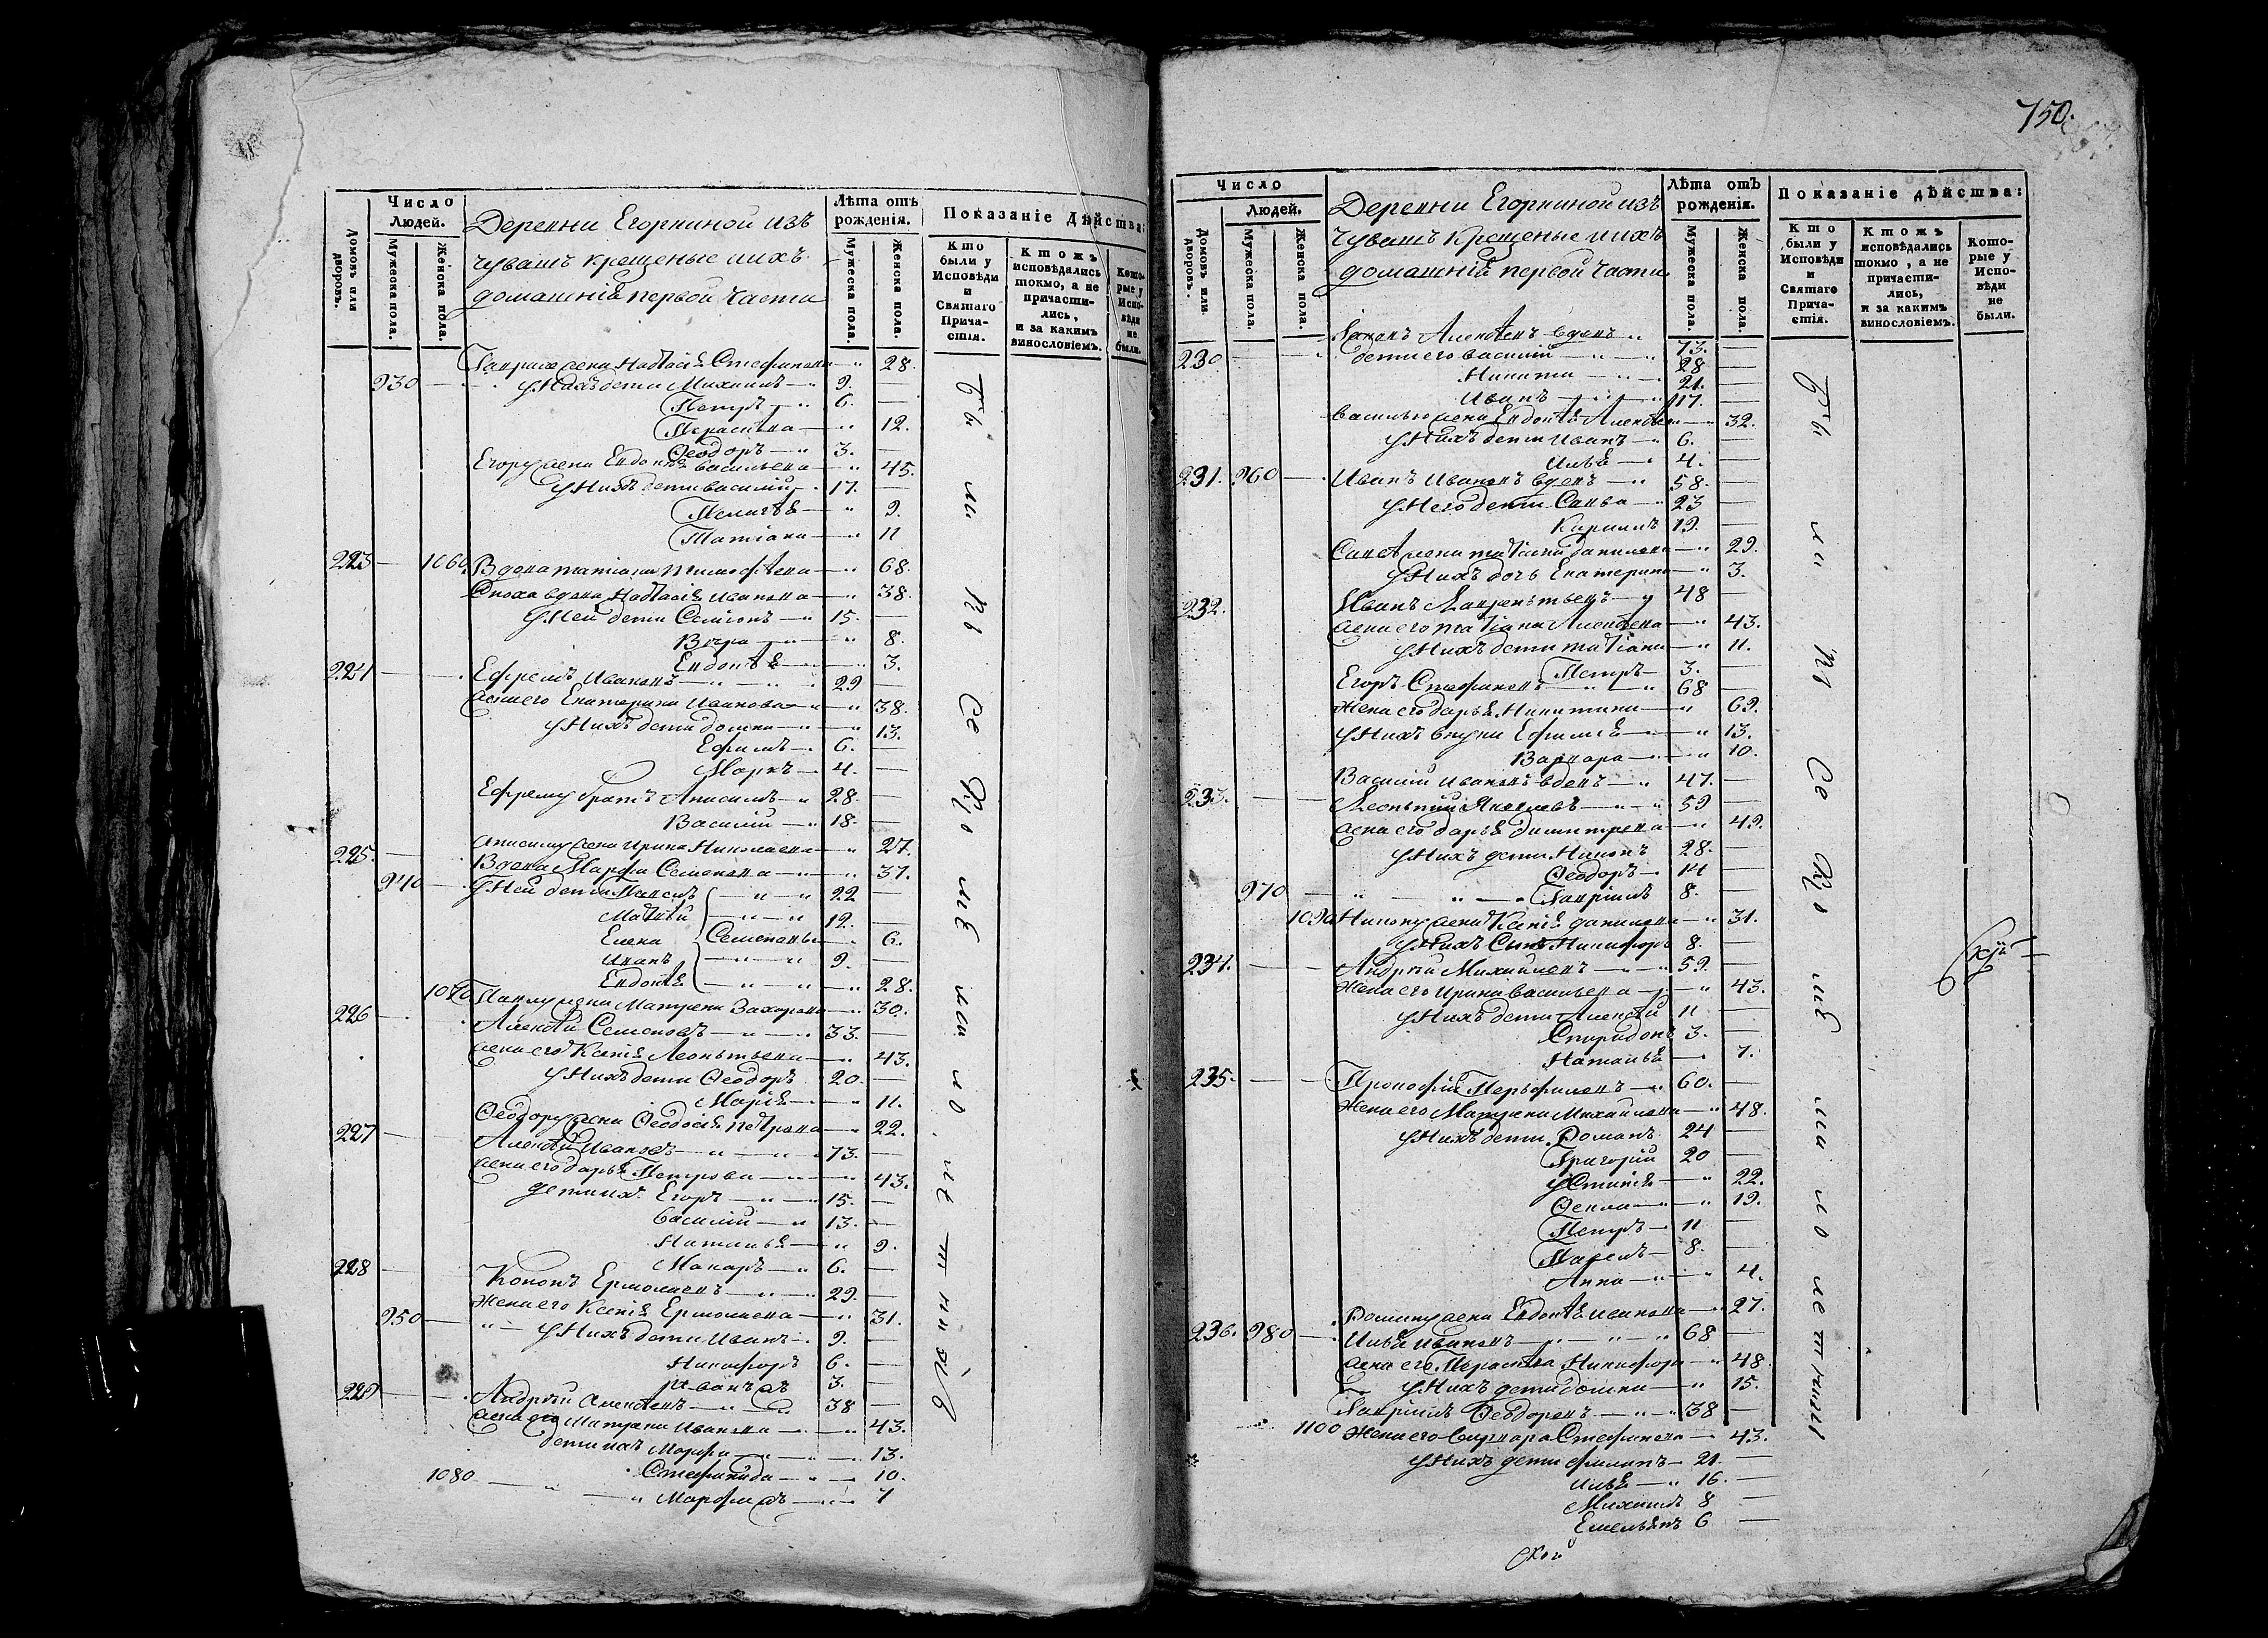 Число
Людей.
Домовъ или дворовъ.
Мужеска пола.
Женска пола.
Деревни Егоркиной изъ
чувашъ крещеные и ихъ
домашнiя первой части
Лѣта отъ рожденія.
Мужеска пола.
Женска пола.
Показаніе Дѣйства:
Кто были у Исповѣди и Святаго Прича-стія.
Ктожъ исповѣдались токмо, а не причасти-лись, и за какимъ винословіемъ.
Кото-рые у Испо-вѣди не были.
жена Настасія Стефанова 28.
930 у Нихъ дети Михаилъ 9.
Петръ 6.
Параскева 12.
Ѳеодоръ 3.
Егору жена Евдокія Васильева 45.
у Нихъ дети Василий 17.
Пелагѣя 9.
Татіана 11
223 1060 Вдова Татіана Тимофѣева 68.
Сноха вдова Настасія Иванова 38.
у Ней дети Семіонъ 15.
Вѣра 8.
Евдокія 3.
224 Ефремъ Ивановъ 29
жена его Екатерина Иванова 38.
у Нихъ дети Домна 13.
Ефимъ 6.
Маркъ 4.
Ефрему братъ Анисимъ 28.
Василий 18.
Анисиму жена Ирина Николаева 27.
225. Вдова Марфа Семенова 37.
940 у Ней дети Павелъ 22
Матвѣй 12.
Елена Семеновы 6.
Иванъ 9.
Евдокія 28.
1070 Павлу жена Матрена Захарова 30.
226 Алексѣй Семеновъ 33.
жена его Ксенія Леонтьева 43.
у Нихъ дети Ѳеодоръ 20.
Марія 11.
Ѳеодору жена Ѳеодосія Петрова 22.
227 Алексѣй Ивановъ 73.
жена его Дарья Петрова 43.
дети их Егоръ 15.
Василий 13.
Наталья 9.
Макаръ 6.
228 Кононъ Ермолаевъ 29.
Жена его Ксенія Ермолаева 31.
950 у Нихъ дети Иванъ 9.
Никифоръ 6.
Иванъ 3.
229 Андрѣй Алексѣевъ 38
жена его Матрена Иванова 43.
дети ихъ Марфа 13.
1080 Стефанида 10.
Марфа 7
Бы ли Въ Се Ѳо
750.
Число
Людей.
Домовъ или дворовъ.
Мужеска пола.
Женска пола.
Деревни Егоркиной изъ
чувашъ крещеные и ихъ
домашнiй первой части
Лѣта отъ рожденія.
Мужеска пола.
Женска пола.
Показаніе дѣйства:
Кто были у Исповѣди и Святаго Прича-стія.
Ктожъ исповѣдались токмо, а не причасти-лись, и за какимъ винословіемъ.
Кото-рые у Испо-вѣди не были.
230 Алексѣевъ вдовъ 73.
дети его Василий 28
Никита 21.
Иванъ 17.
Василью жена Евдокія Алексѣева 32.
у Нихъ дети Иванъ 6.
Илья 4.
231. 960 Иванъ Ивановъ вдовъ 58.
у Него дети Савва 23
Кирилъ 19.
Савѣ жена Татіана Данилова 29.
у Нихъ дочь Екатерина 3.
232. Иванъ Лаврентьевъ 48
жена его Татіана Алексѣева 43.
у Нихъ дети Татіана 11.
Петръ 3.
Егоръ Стефановъ 68
Жена его Дарья Никитина 69.
у Нихъ внуки Ефимія 13.
Варвара 10.
233. Василий Ивановъ вдовъ 47.
Леонтий Яковлевъ 59
жена его Дарья Димитрева 49.
у Нихъ дети Никонъ 28.
Ѳеодоръ 14
970 Гавріилъ 8.
1090 Никону жена Ксенія Данилова 31.
у Нихъ Сынъ Никифоръ 8.
234. Андрѣй Михайловъ 59.
Жена его Ирина Васильева 43.
у Нихъ дети Алексѣй 11
Спиридонъ 3.
Наталья 7.
235. Прокофій Перьфиловъ 60.
Жена его Матрена Михайлова 48.
у Нихъ дети Романъ 24
Григорій 20
Устинія 22.
Ѳекла 19.
Петръ 11
Павелъ 8.
Анна 4.
Роману жена Евдокія Иванова 27.
236. 980 Илья Ивановъ 68
жена его Параскева Никифорова 48.
у Нихъ дети Домна 15.
Гавріилъ Ѳеодоровъ 38
1100 Жена его Варвара Стефанова 43.
у Нихъ дети Филипъ 21.
Илья 16.
Михаилъ 8
Емельянъ 6
Бы ли Въ Се Ѳо